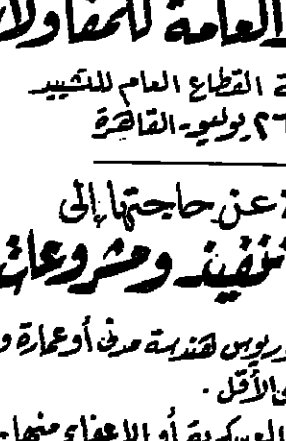 العامة للمقاولات
القطاع العام للتشييد
٢٦ يوليو - القاهرة
عن حاجتها إلى
تنفيذ ومشروعات
هندسة مدنى أو عمارة و
الأقل .
العسكرية أو الإعفاء منها .